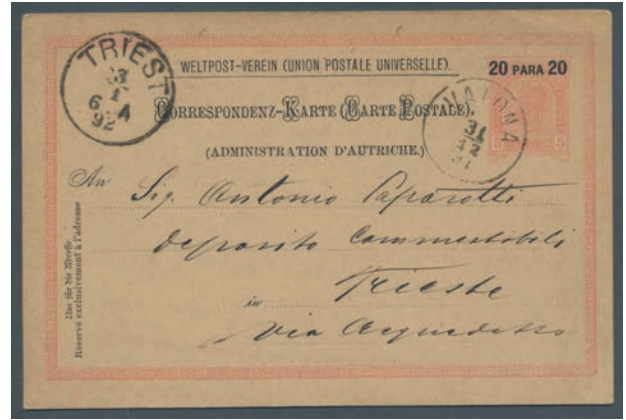 TRIEST
3
1
6 A
92
WELTPOST-VEREIN (UNION POSTALE UNIVERSELLE).
20 PARA 20
CORRESPONDENZ-KARTE (CARTE POSTALE).
VALONA
31
12
91
5 5
(ADMINISTRATION D'AUTRICHE.)
An Sig. Antonio Paparotti
deposito Commestibili
in Trieste
Via Acquedotto
Nur für die Adresse.
Réservé exclusivement à l'adresse